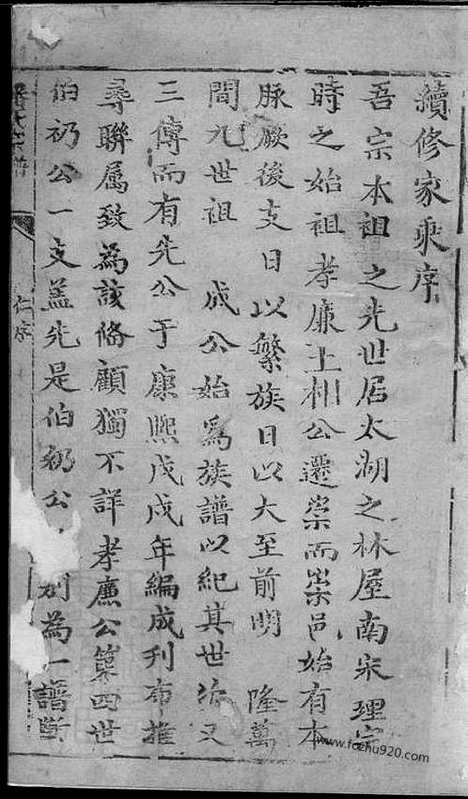 續修家乘序
吾宗本祖之先世居太湖之林屋南宋理宗
時之始祖孝廉上相公遷崇而崇邑始有本
脉厥後支日以繁族日以大至前明 隆萬
間九世祖 成公始爲族譜以紀其世次又
三傳而有先公于康熙戊戌年編成刋布推
尋聯屬致為該俻顧獨不詳孝廉公第四世
伯礽公一支蓋先是伯礽公 别為一譜斷
www.fochu920.com